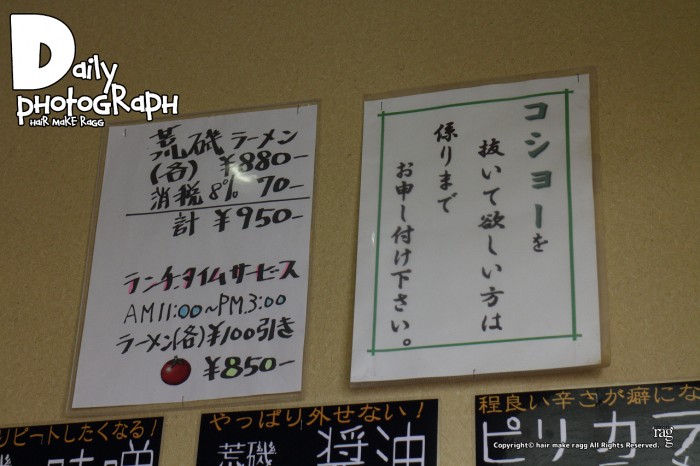 Daily
Photograph
HAIR MAKE RAGG
荒磯 ラーメン
(各) ¥880-
消税 8% 70-
計 ¥950-
ランチタイムサービス
AM11:00~PM.3:00
ラーメン(各)¥100引き
¥850-
コショーを
抜いて欲しい方は
係りまで
お申し付け下さい。
リピートしたくなる!
味噌
やっぱり外せない!
荒磯 醤油
程良い辛さが癖にな
ピリカラ
rag
Copyright© hair make ragg All Rights Reserved.